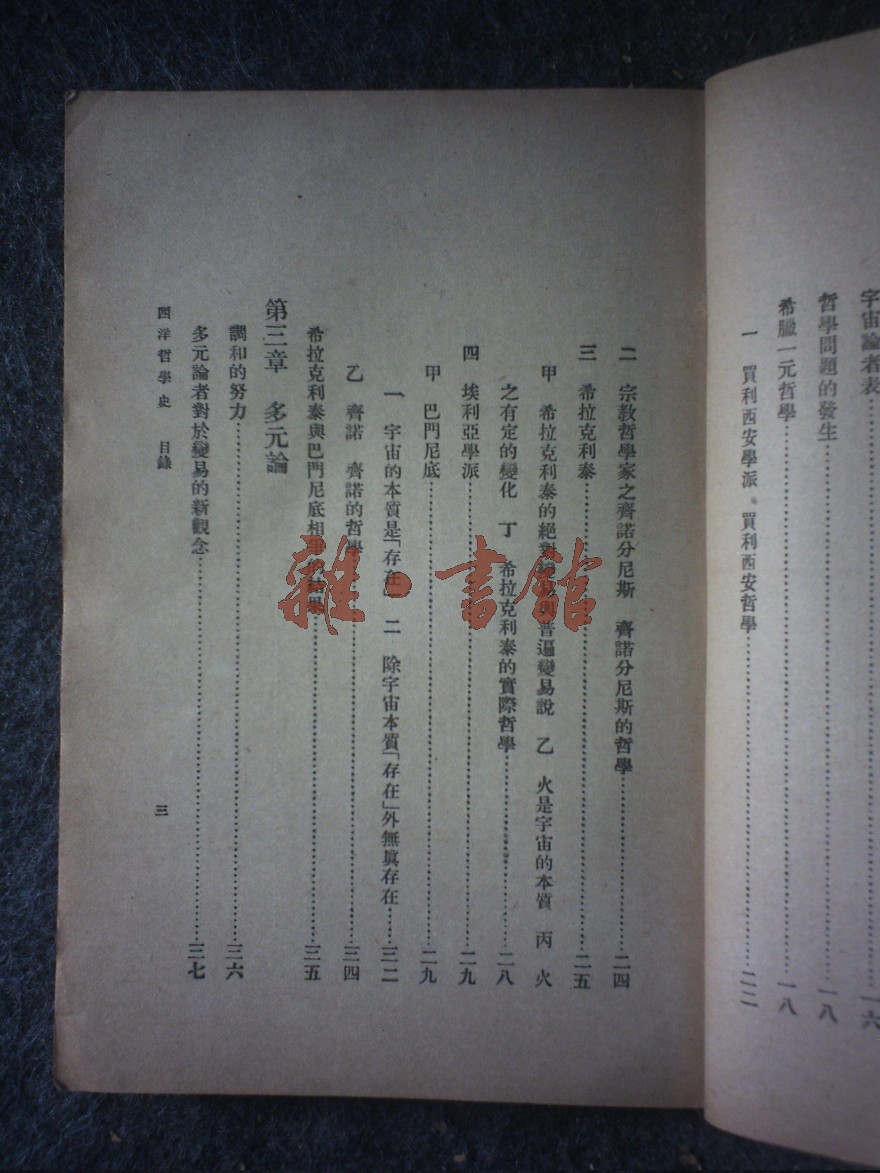 宇宙論者表……一六
哲學問題的發生……一八
希臘一元哲學……一八
一　買利西安學派　買利西安哲學……二二
二　宗教哲學家之齊諾分尼斯　齊諾分尼斯的哲學……二四
三　希拉克利泰……二五
甲　希拉克利泰的絕對變易與普遍變易說　乙　火是宇宙的本質　丙　火
之有定的變化　丁　希拉克利泰的實際哲學……二八
四　埃利亞學派……二九
甲　巴門尼底……二九
一、宇宙的本質是「存在」　二　除宇宙本質「存在」外無眞存在……三二
乙　齊諾　齊諾的哲學……三四
希拉克利泰與巴門尼底相的結果……三五
第三章　多元論
調和的努力……三六
多元論者對於變易的新觀念……三七
西洋哲學史　目錄
三
雜·書館